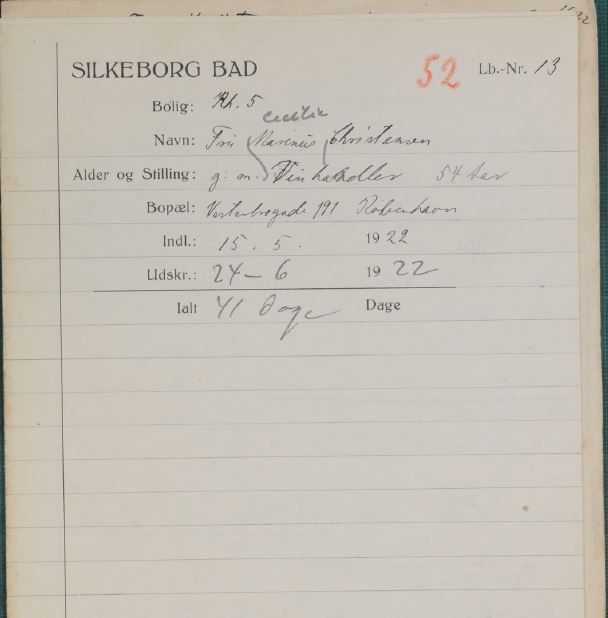 SILKEBORG BAD 52 Lb.-Nr. 13
Bolig: Kh. 5
Cecilie
Navn: Fru (Marinus) Christensen
Alder og Stilling: g. m. Vinhandler 54 Aar
Bopæl: Vesterbrogade 191 København
Indl.: 15. 5. 1922
Udskr.: 24 – 6 1922
Ialt 41 Dage Dage